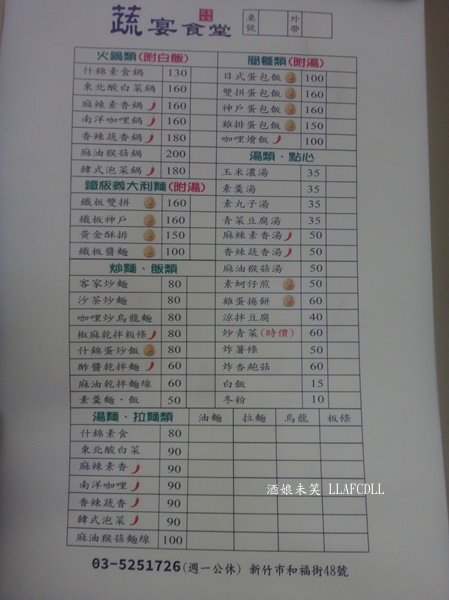 蔬宴食堂
桌號
外帶
火鍋類(附白飯)
什錦素食鍋 130
東北酸白菜鍋 160
麻辣素香鍋 160
南洋咖哩鍋 160
香辣蔬香鍋 180
麻油猴菇鍋 200
韓式泡菜鍋 180
鐵板義大利麵(附湯)
鐵板雙拼 160
鐵板神戶 160
黃金酥排 150
鐵板醬麵 100
炒麵、飯類
客家炒麵 80
沙茶炒麵 80
咖哩炒烏龍麵 80
椒麻乾拌板條 80
什錦蛋炒飯 80
酢醬乾拌麵 60
麻油乾拌麵線 60
素羹麵、飯 50
簡餐類(附湯)
日式蛋包飯 100
雙拼蛋包飯 160
神戶蛋包飯 160
雞排蛋包飯 150
咖哩燴飯 100
湯類、點心
玉米濃湯 35
素羹湯 35
素丸子湯 35
青菜豆腐湯 35
麻辣素香湯 50
香辣蔬香湯 50
麻油猴菇湯 50
素蚵仔煎 50
雞蛋捲餅 60
涼拌豆腐 40
炒青菜(時價) 60
炸薯條 50
炸杏鮑菇 60
白飯 15
冬粉 10
湯麵、拉麵類 油麵 拉麵 烏龍 板條
什錦素食 80
東北酸白菜 90
麻辣素香 90
南洋咖哩 90
香辣蔬香 90
韓式泡菜 90
麻油猴菇麵線 100
酒娘未笑 LLAFCDLL
03-5251726(週一公休) 新竹市和福街48號